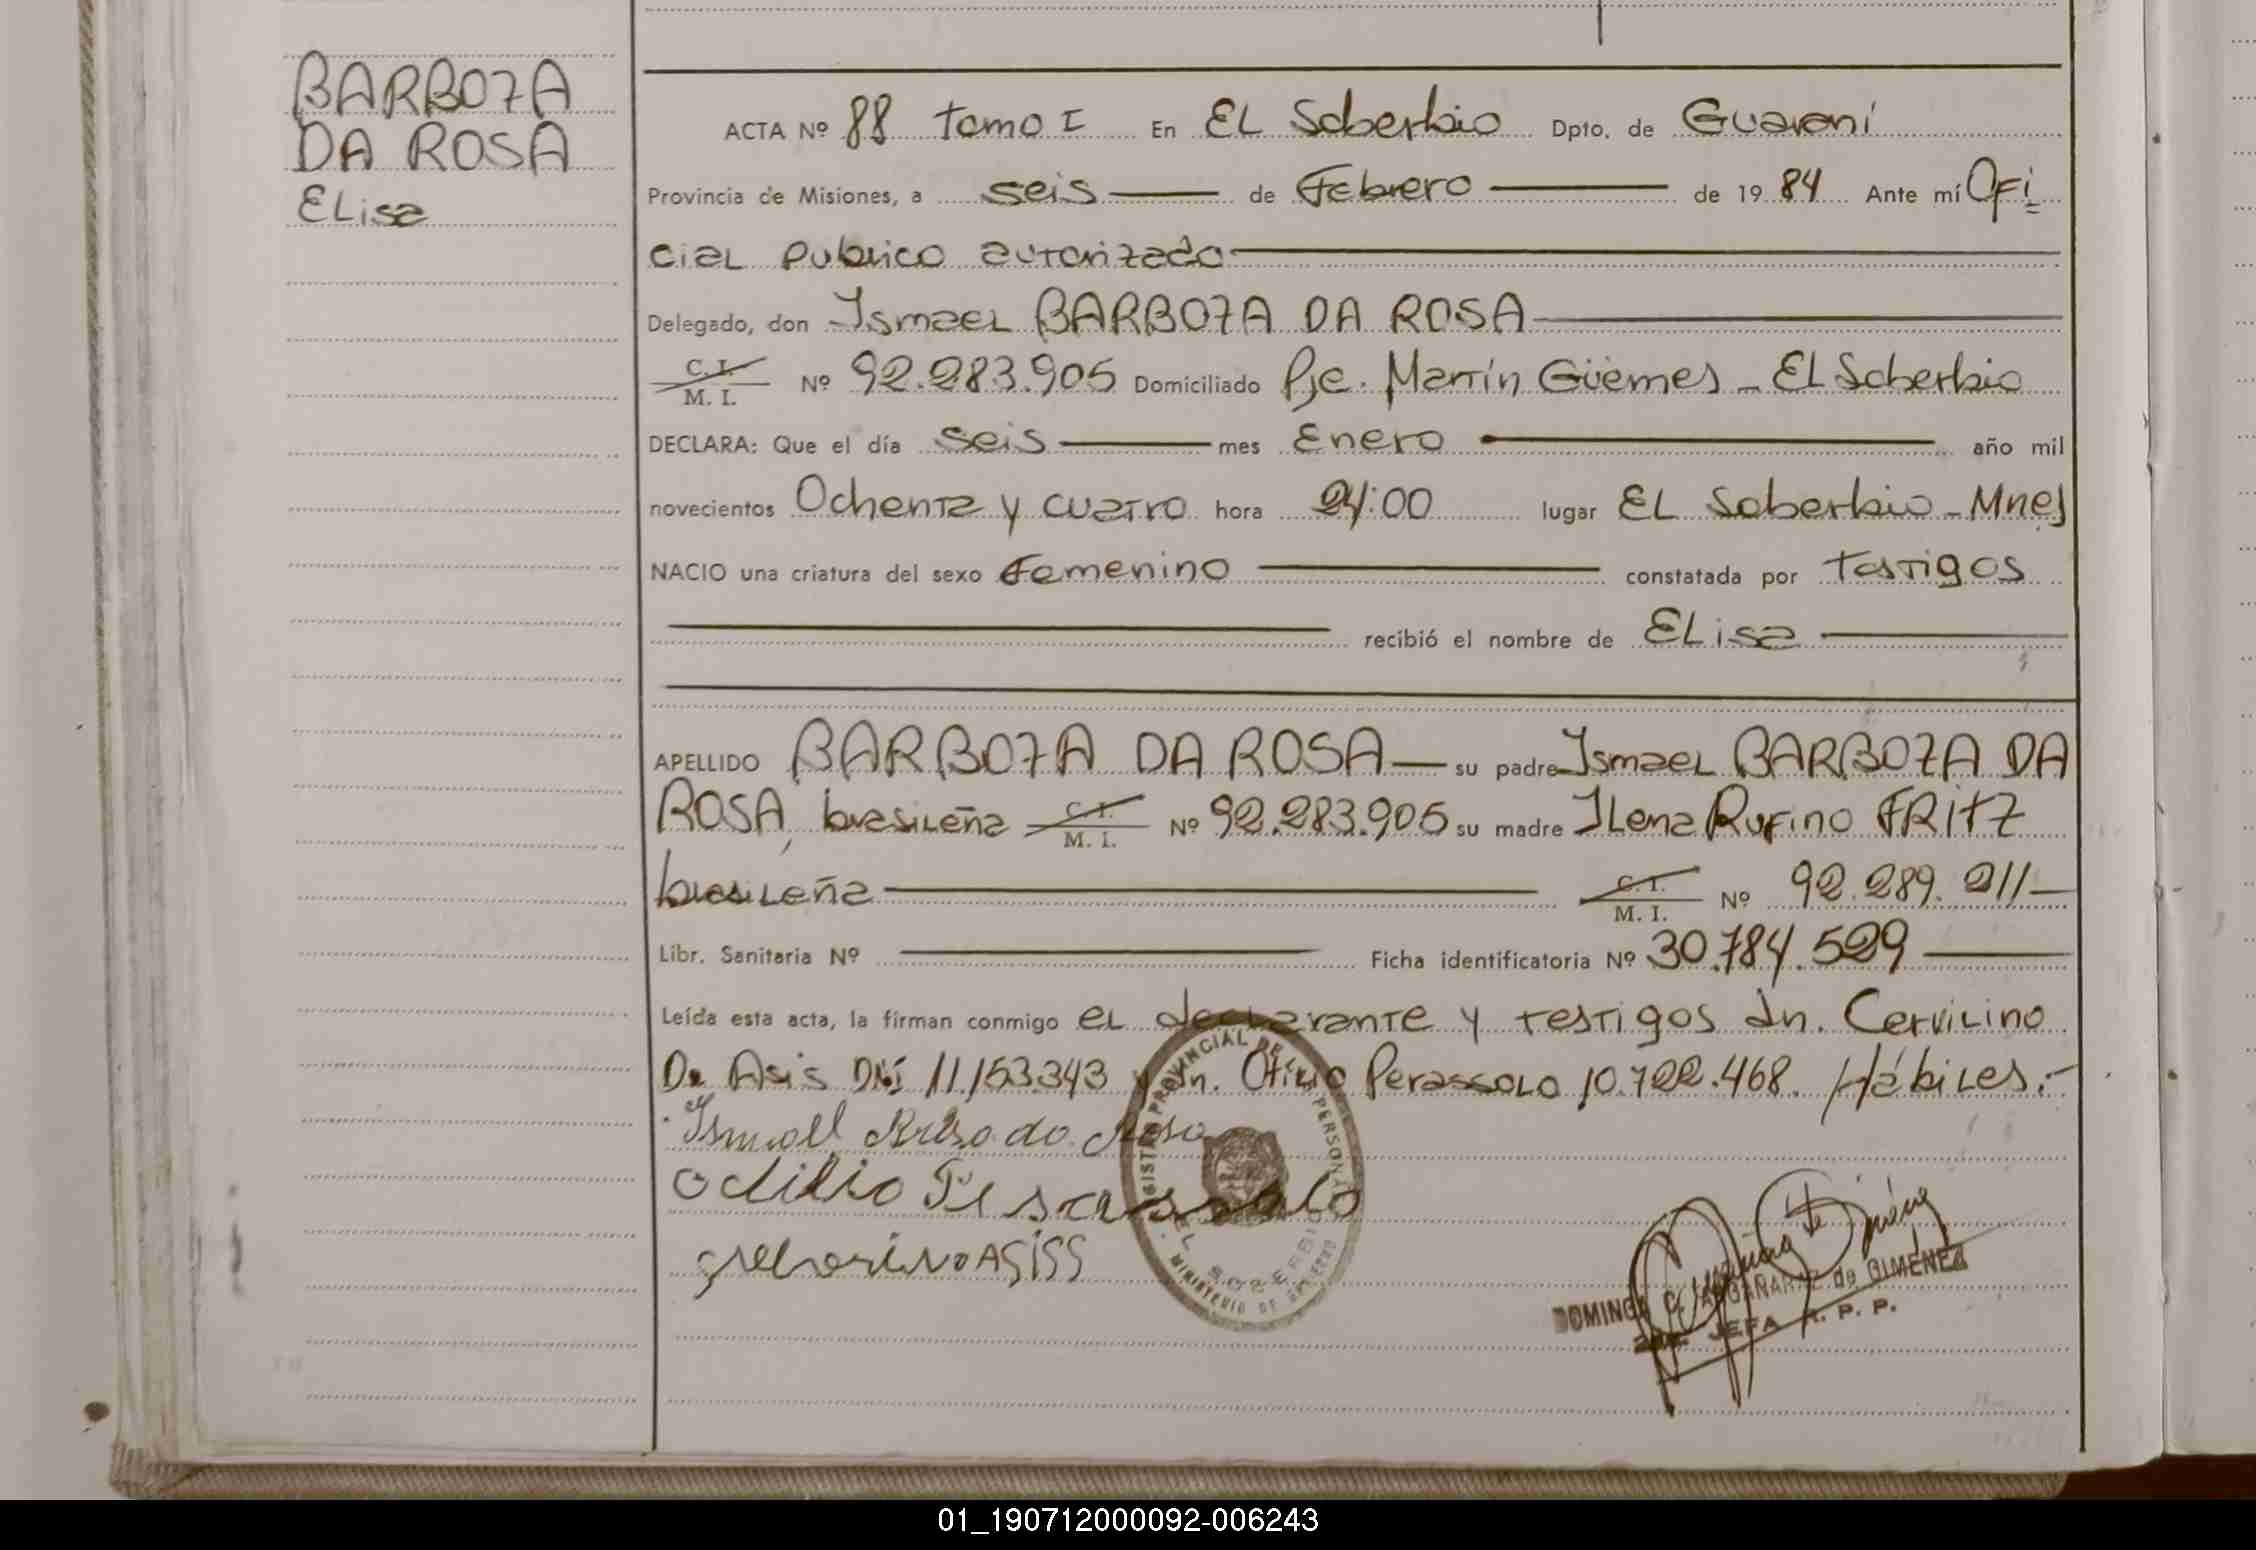 BARBOZA
DA ROSA
ELisa
ACTA Nº 88 tomo I En EL Soberbio Dpto. de Guaraní
Provincia de Misiones, a seis de Febrero de 1984 Ante mí Ofi
cial Publico autorizado
Delegado, don Ismael BARBOZA DA ROSA
C. I.
M. I. Nº 92.283.905 Domiciliado Pje. Martín Güemes - EL Soberbio
DECLARA: Que el día seis mes Enero año mil
novecientos Ochenta y cuatro hora 24:00 lugar EL Soberbio - Mnes
NACIO una criatura del sexo femenino constatada por testigos
recibió el nombre de ELisa
APELLIDO BARBOZA DA ROSA su padre Ismael BARBOZA DA
ROSA, brasileña C. I. M. I. Nº 92.283.905 su madre ILena Rufino FRITZ
brasileña C. I. M. I. Nº 92.289.211
Libr. Sanitaria Nº Ficha identificatoria Nº 30.784.529
Leída esta acta, la firman conmigo el declarante y testigos dn. Cervilino
De Asis DNI 11.153.343 y dn. Otilio Perassolo 10.722.468. Hábiles.-
Ismael da Rosa
REGISTRO PROVINCIAL DE LAS PERSONAS
EL SOBERBIO
MINISTERIO DE GOBIERNO
DOMINGA de GIMENEZ
JEFA R. P. P.
01_190712000092-006243